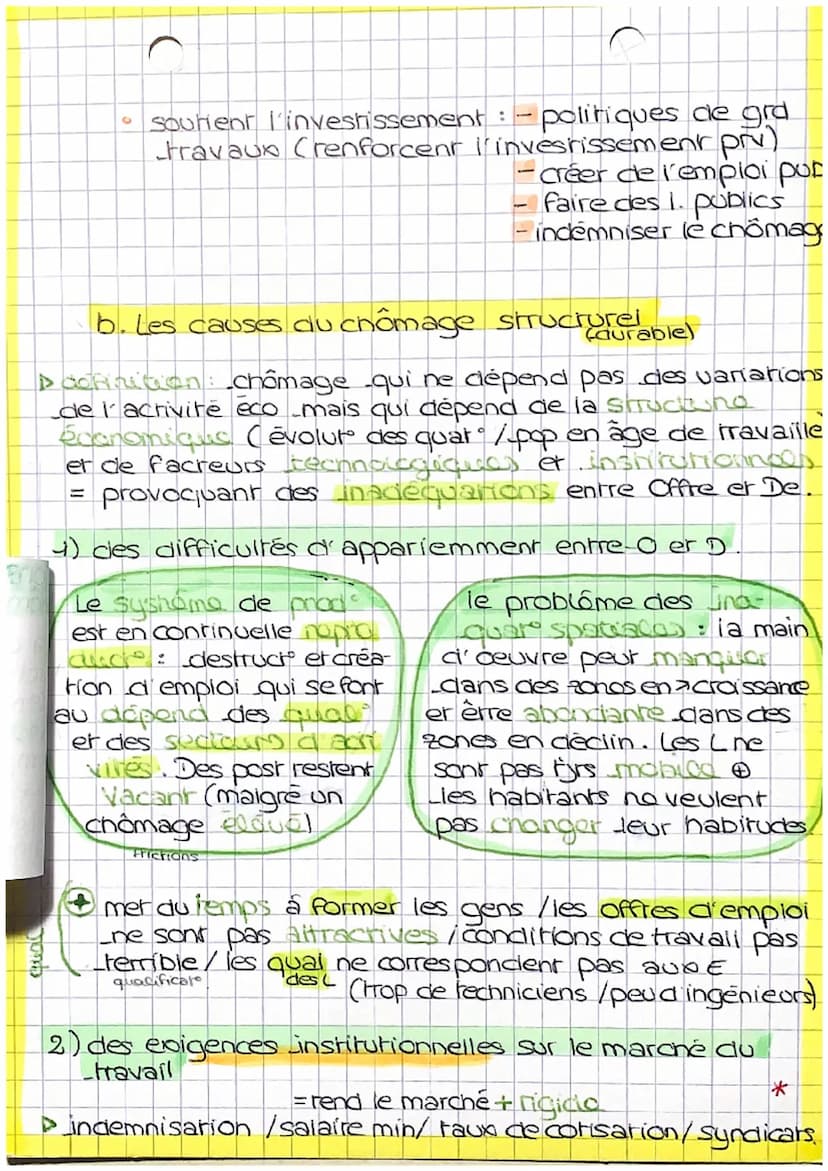 • soutient l'investissement : - politiques de grd
travaux (renforcent l'investissement priv)
- créer de l'emploi pub
- faire des I. publics
- indémniser le chômag
b. Les causes du chômage structurel
(durable)
▷ définition : chômage qui ne dépend pas des variations
de l'activité éco mais qui dépend de la structure
économique (évolut° des qual° / pop en âge de travaille
et de facteurs technologiques et institutionnels
= provoquant des inadéquations entre Offre et De.
1) des difficultés d'appariemment entre O et D.
Le système de prod°
est en continuelle
: destruct° et créa-
tion d'emploi qui se font
au dépend des qual°
et des secteurs d'acti
vités. Des post restent
vacant (malgré un
chômage élevé)
frictions
le problème des ina-
quat° spatiales : la main
d'oeuvre peut manquer
dans des zones en ↗ croissance
et être abondante dans des
zones en déclin. Les L ne
sont pas tjrs mobile ⊕
les habitants ne veulent
pas changer leur habitudes
⊕ met du temps à former les gens / les offres d'emploi
ne sont pas attractives / conditions de travail pas
terrible / les qual ne correspondent pas aux E
qualificat° des L
(trop de techniciens / peu d'ingénieurs)
2) des exigences institutionnelles sur le marché du
travail
= rend le marché + rigide
*
▷ indemnisation / salaire min / taux de cotisation / syndicats.